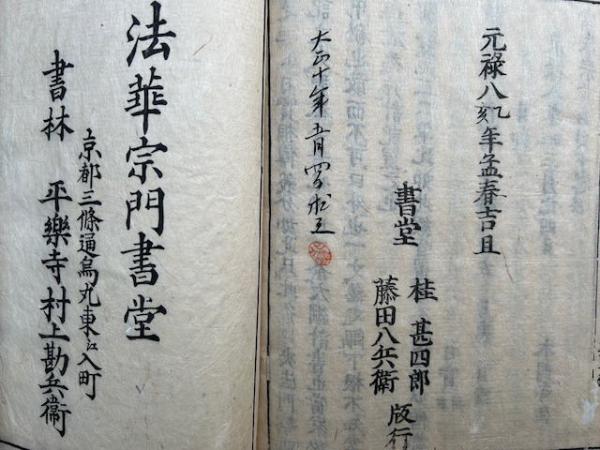 元祿八乙亥年孟春吉旦
書堂
桂 甚四郎
藤田八兵衛
版行
大正十年
法華宗門書堂
京都三條通烏丸東江入町
書林 平樂寺村上勘兵衞